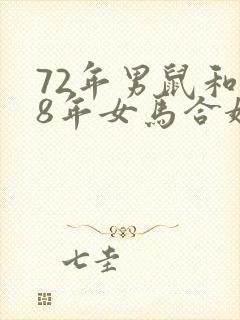 72年男鼠和
8年女馬合
七圭